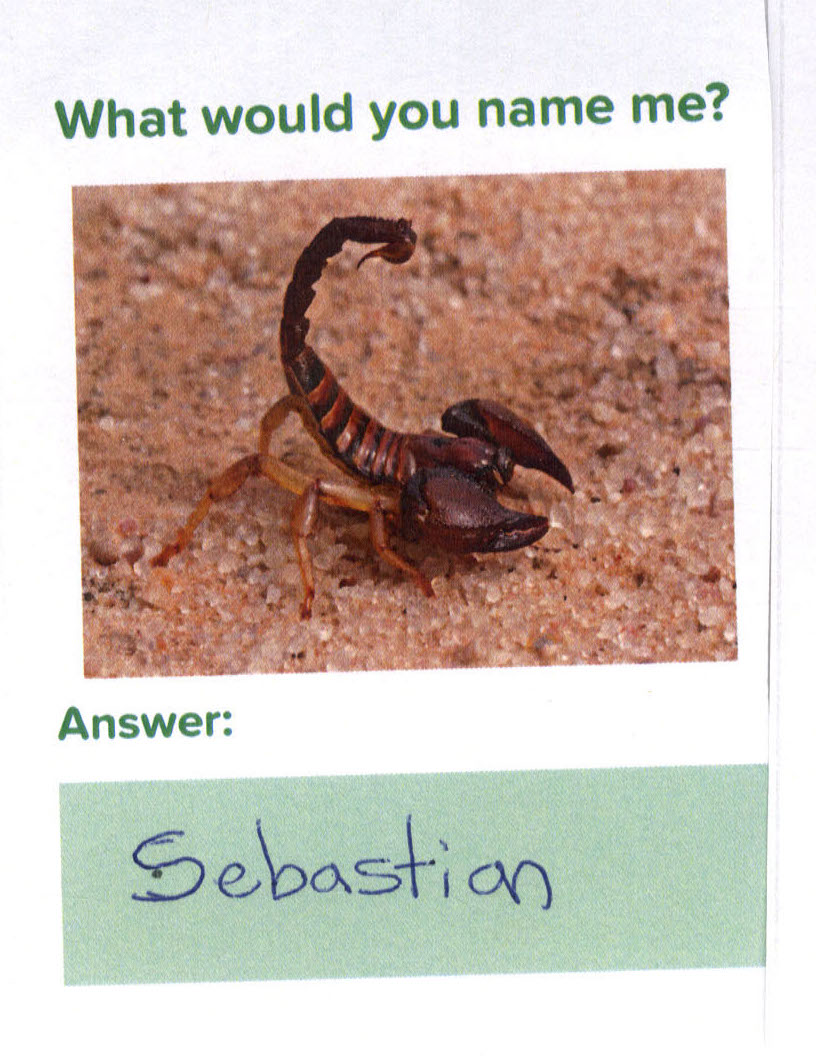 What would you name me?
Answer:
Sebastian